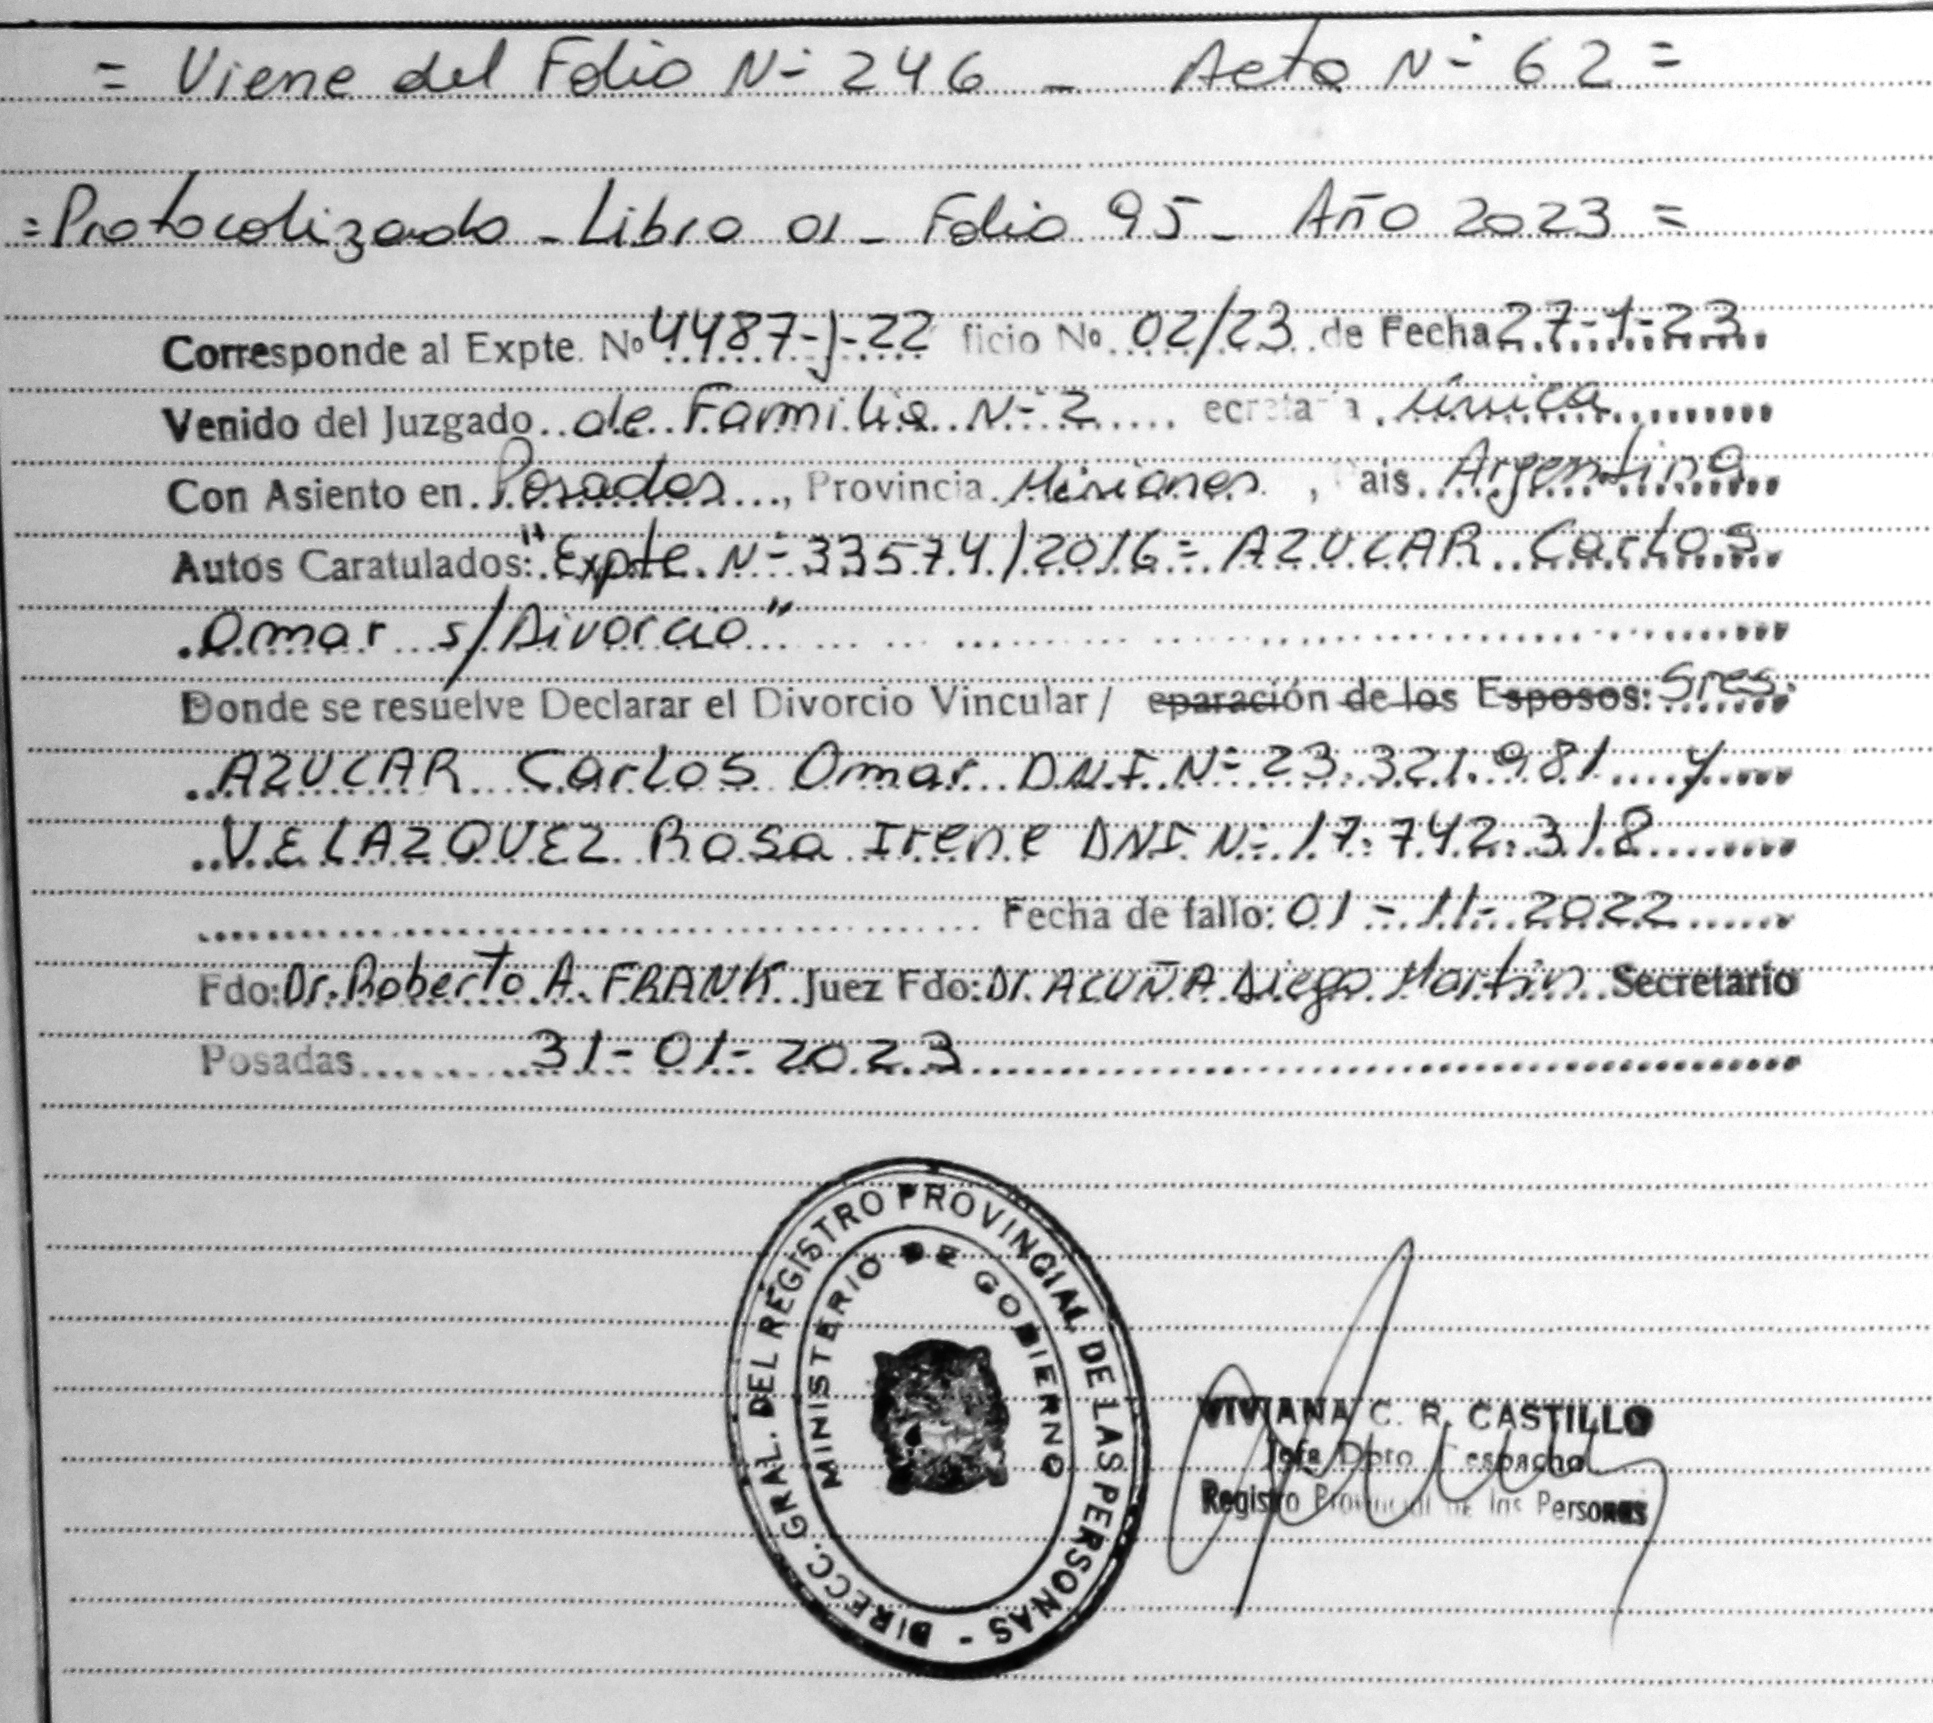 = Viene del Folio N- 246 - Acta N- 62 =
= Protocolizado - Libro 01 - Folio 95 - Año 2023 =
Corresponde al Expte. No 4487-J-22 ficio No 02/23 de Fecha 27-1-23
Venido del Juzgado de Familia N- 2 ecretaria única
Con Asiento en Posadas, Provincia Misiones, ais Argentina
Autos Caratulados: "Expte N- 33574/2016 = AZUCAR Carlos
Omar s/Divorcio"
Donde se resuelve Declarar el Divorcio Vincular / eparación de los Esposos: Sres.
AZUCAR Carlos Omar D.N.I. N- 23.321.981 y
VELAZQUEZ Rosa Irene DNI N- 17.742.318
Fecha de fallo: 01-11-2022
Fdo: Dr. Roberto A. FRANK Juez Fdo: Dr. ACUÑA Diego Martin Secretario
Posadas 31-01-2023
DIRECC. GRAL. DEL REGISTRO PROVINCIAL DE LAS PERSONAS -
MINISTERIO DE GOBIERNO
VIVIANA C. R. CASTILLO
Jefa Dpto espacho
Registro Provincial de las Personas